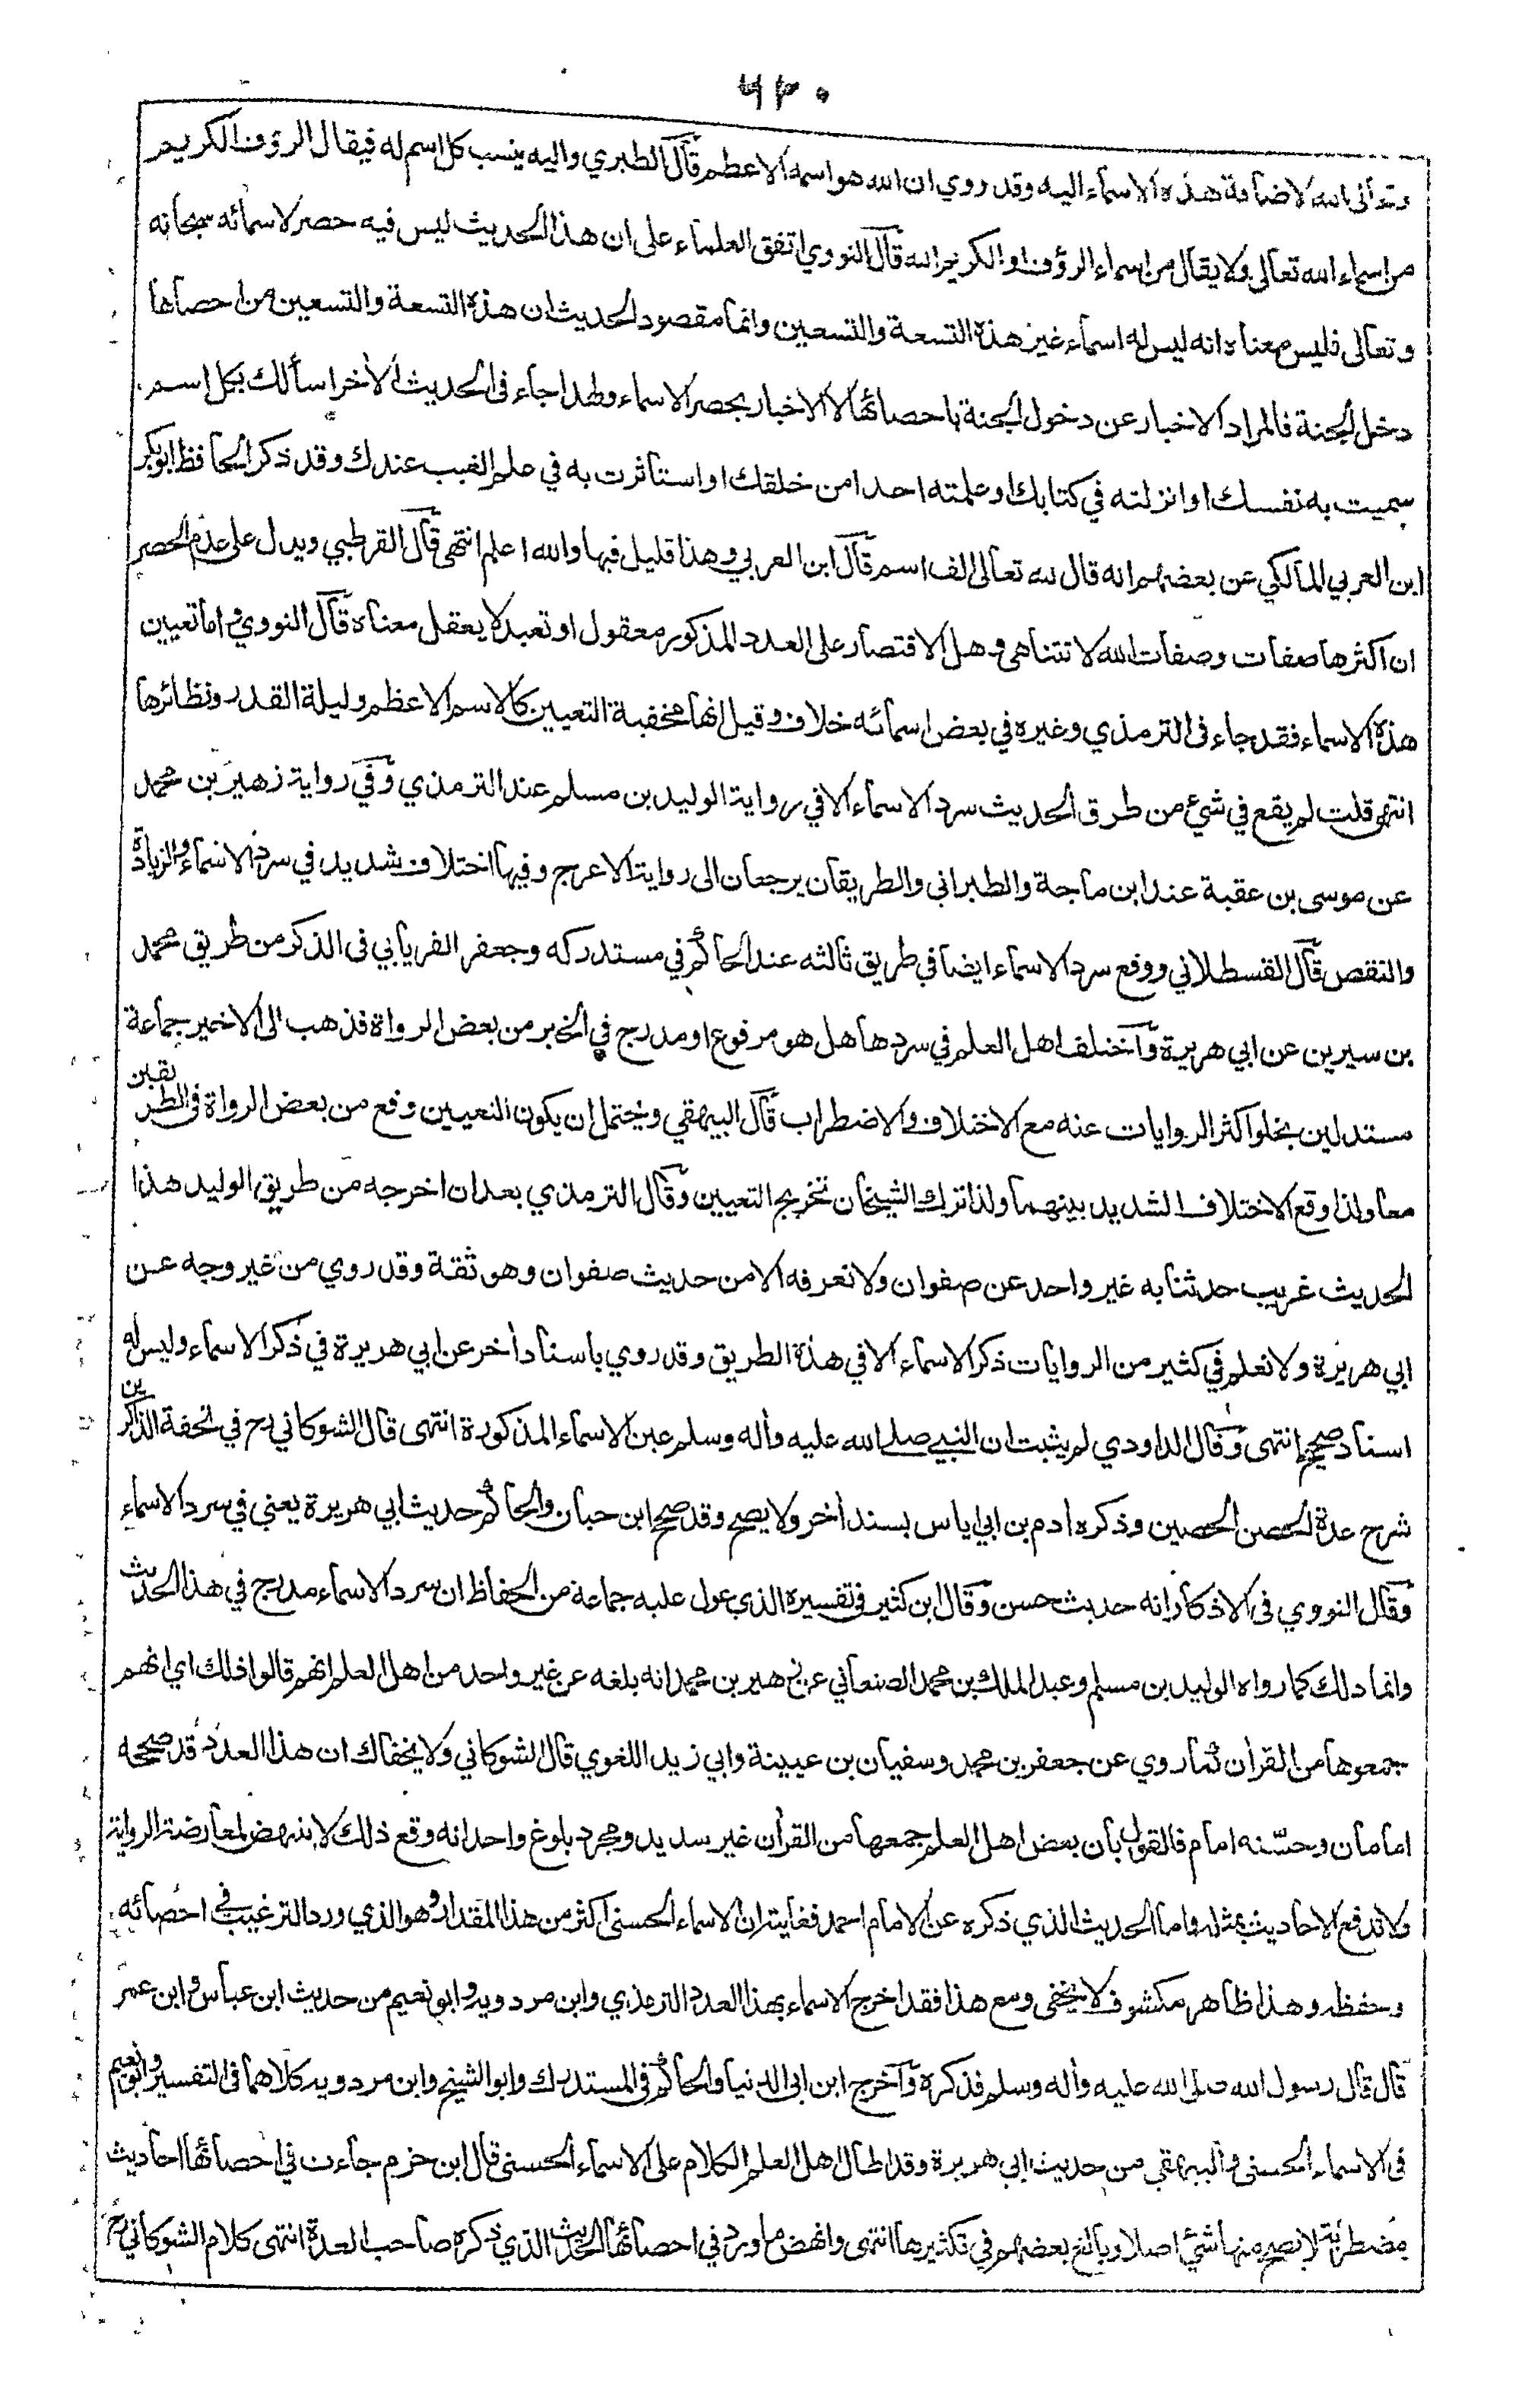 ٦٣٠
الله لاضافة هذه الاسماء اليه وقد روي ان الله هو اسمه الاعظم قال الطبري واليه ينسب كل اسم له فيقال الرؤف الكريم
من اسماء الله تعالى ولا يقال من اسماء الرؤف او الكريم الله قال النووي اتفق العلماء على ان هذا الحديث ليس فيه حصر لاسمائه سبحانه
وتعالى فليس معناه انه ليس له اسماء غير هذه التسعة والتسعين وانما مقصود الحديث ان هذه التسعة والتسعين من احصاها
دخل الجنة فالمراد الاخبار عن دخول الجنة باحصائها لا الاخبار بحصر الاسماء ولهذا جاء في الحديث الأخر اسألك بكل اسم
سميت به نفسك او انزلته في كتابك او علمته احدا من خلقك او استأثرت به في علم الغيب عندك وقد ذكر الحافظ ابو بكر
ابن العربي المالكي عن بعضهم انه قال لله تعالى الف اسم قال ابن العربي وهذا قليل فيها والله اعلم انتهى قال القرطبي ويدل على عدم الحصر
ان اكثرها صفات وصفات الله لا تتناهى وهل الاقتصار على العدد المذكور معقول او تعبد لا يعقل معناه قال النووي واما تعيين
هذه الاسماء فقد جاء في الترمذي وغيره في بعض اسمائه خلاف وقيل انها مخفية التعيين كالاسم الاعظم وليلة القدر ونظائرها
انتهى قلت لم يقع في شيء من طرق الحديث سرد الاسماء الا في رواية الوليد بن مسلم عند الترمذي وفي رواية زهير بن محمد
عن موسى بن عقبة عند ابن ماجة والطبراني والطريقان يرجعان الى رواية الاعرج وفيها اختلاف شديد في سرد الاسماء والزيادة
والنقص قال القسطلاني ووقع سرد الاسماء ايضا في طريق ثالثه عند الحاكم في مستدركه وجعفر الفريابي في الذكر من طريق محمد
بن سيرين عن ابي هريرة واختلف اهل العلم في سردها هل هو مرفوع او مدرج في الخبر من بعض الرواة فذهب الى الاخير جماعة
مستدلين بخلو اكثر الروايات عنه مع الاختلاف والاضطراب قال البيهقي ويحتمل ان يكون التعيين وقع من بعض الرواة في الطريقين
معا ولذا وقع الاختلاف الشديد بينهما ولذا ترك الشيخان تخريج التعيين وقال الترمذي بعد ان اخرجه من طريق الوليد هذا
الحديث غريب حدثنا به غير واحد عن صفوان ولا نعرفه الا من حديث صفوان وهو ثقة وقد روي من غير وجه عن
ابي هريرة ولا نعلم في كثير من الروايات ذكر الاسماء الا في هذه الطريق وقد روي باسناد أخر عن ابي هريرة في ذكر الاسماء وليس له
اسناد صحيح انتهى وقال الداودي لم يثبت ان النبي صلى الله عليه وأله وسلم عين الاسماء المذكورة انتهى قال الشوكاني رح في تحفة الذاكرين
شرح عدة الحصن الحصين وذكره أدم بن ابي اياس بسند أخر ولا يصح وقد صحح ابن حبان والحاكم حديث ابي هريرة يعني في سرد الاسماء
وقال النووي في الاذكار انه حديث حسن وقال ابن كثير في تفسيره الذي عول عليه جماعة من الحفاظ ان سرد الاسماء مدرج في هذا الحديث
وانما ذلك كما رواه الوليد بن مسلم وعبد الملك بن محمد الصنعاني عن زهير بن محمد انه بلغه عن غير واحد من اهل العلم انهم قالوا ذلك اي انهم
جمعوها من القرأن كما روي عن جعفر بن محمد وسفيان بن عيينة وابي زيد اللغوي قال الشوكاني ولا يخفاك ان هذا العدد قد صححه
امامان وحسّنه امام فالقول بأن بعض اهل العلم جمعها من القرأن غير سديد ومجرد بلوغ واحد انه وقع ذلك لا ينتهض لمعارضة الرواية
ولا تدفع الاحاديث بمثله واما الحديث الذي ذكره عن الامام احمد فغايته ان الاسماء الحسنى اكثر من هذا المقدار وهو الذي ورد الترغيب في احصائه
وحفظه وهذا ظاهر مكشوف لا يخفى ومع هذا فقد اخرج الاسماء بهذا العدد الترمذي وابن مردويه وابو نعيم من حديث ابن عباس وابن عمر
قال قال رسول الله صلى الله عليه وأله وسلم فذكره واخرج ابن ابي الدنيا والحاكم في المستدرك وابو الشيخ وابن مردويه كلاهما في التفسير وابو نعيم
في الاسماء الحسنى والبيهقي من حديث ابي هريرة وقد اطال اهل العلم الكلام على الاسماء الحسنى قال ابن حزم جاءت في احصائها احاديث
مضطربة لا يصح منها شئ اصلا وبالغ بعضهم في تكثيرها انتهى وانهض ما ورد في احصائها الحديث الذي ذكره صاحب العدة انتهى كلام الشوكاني رح